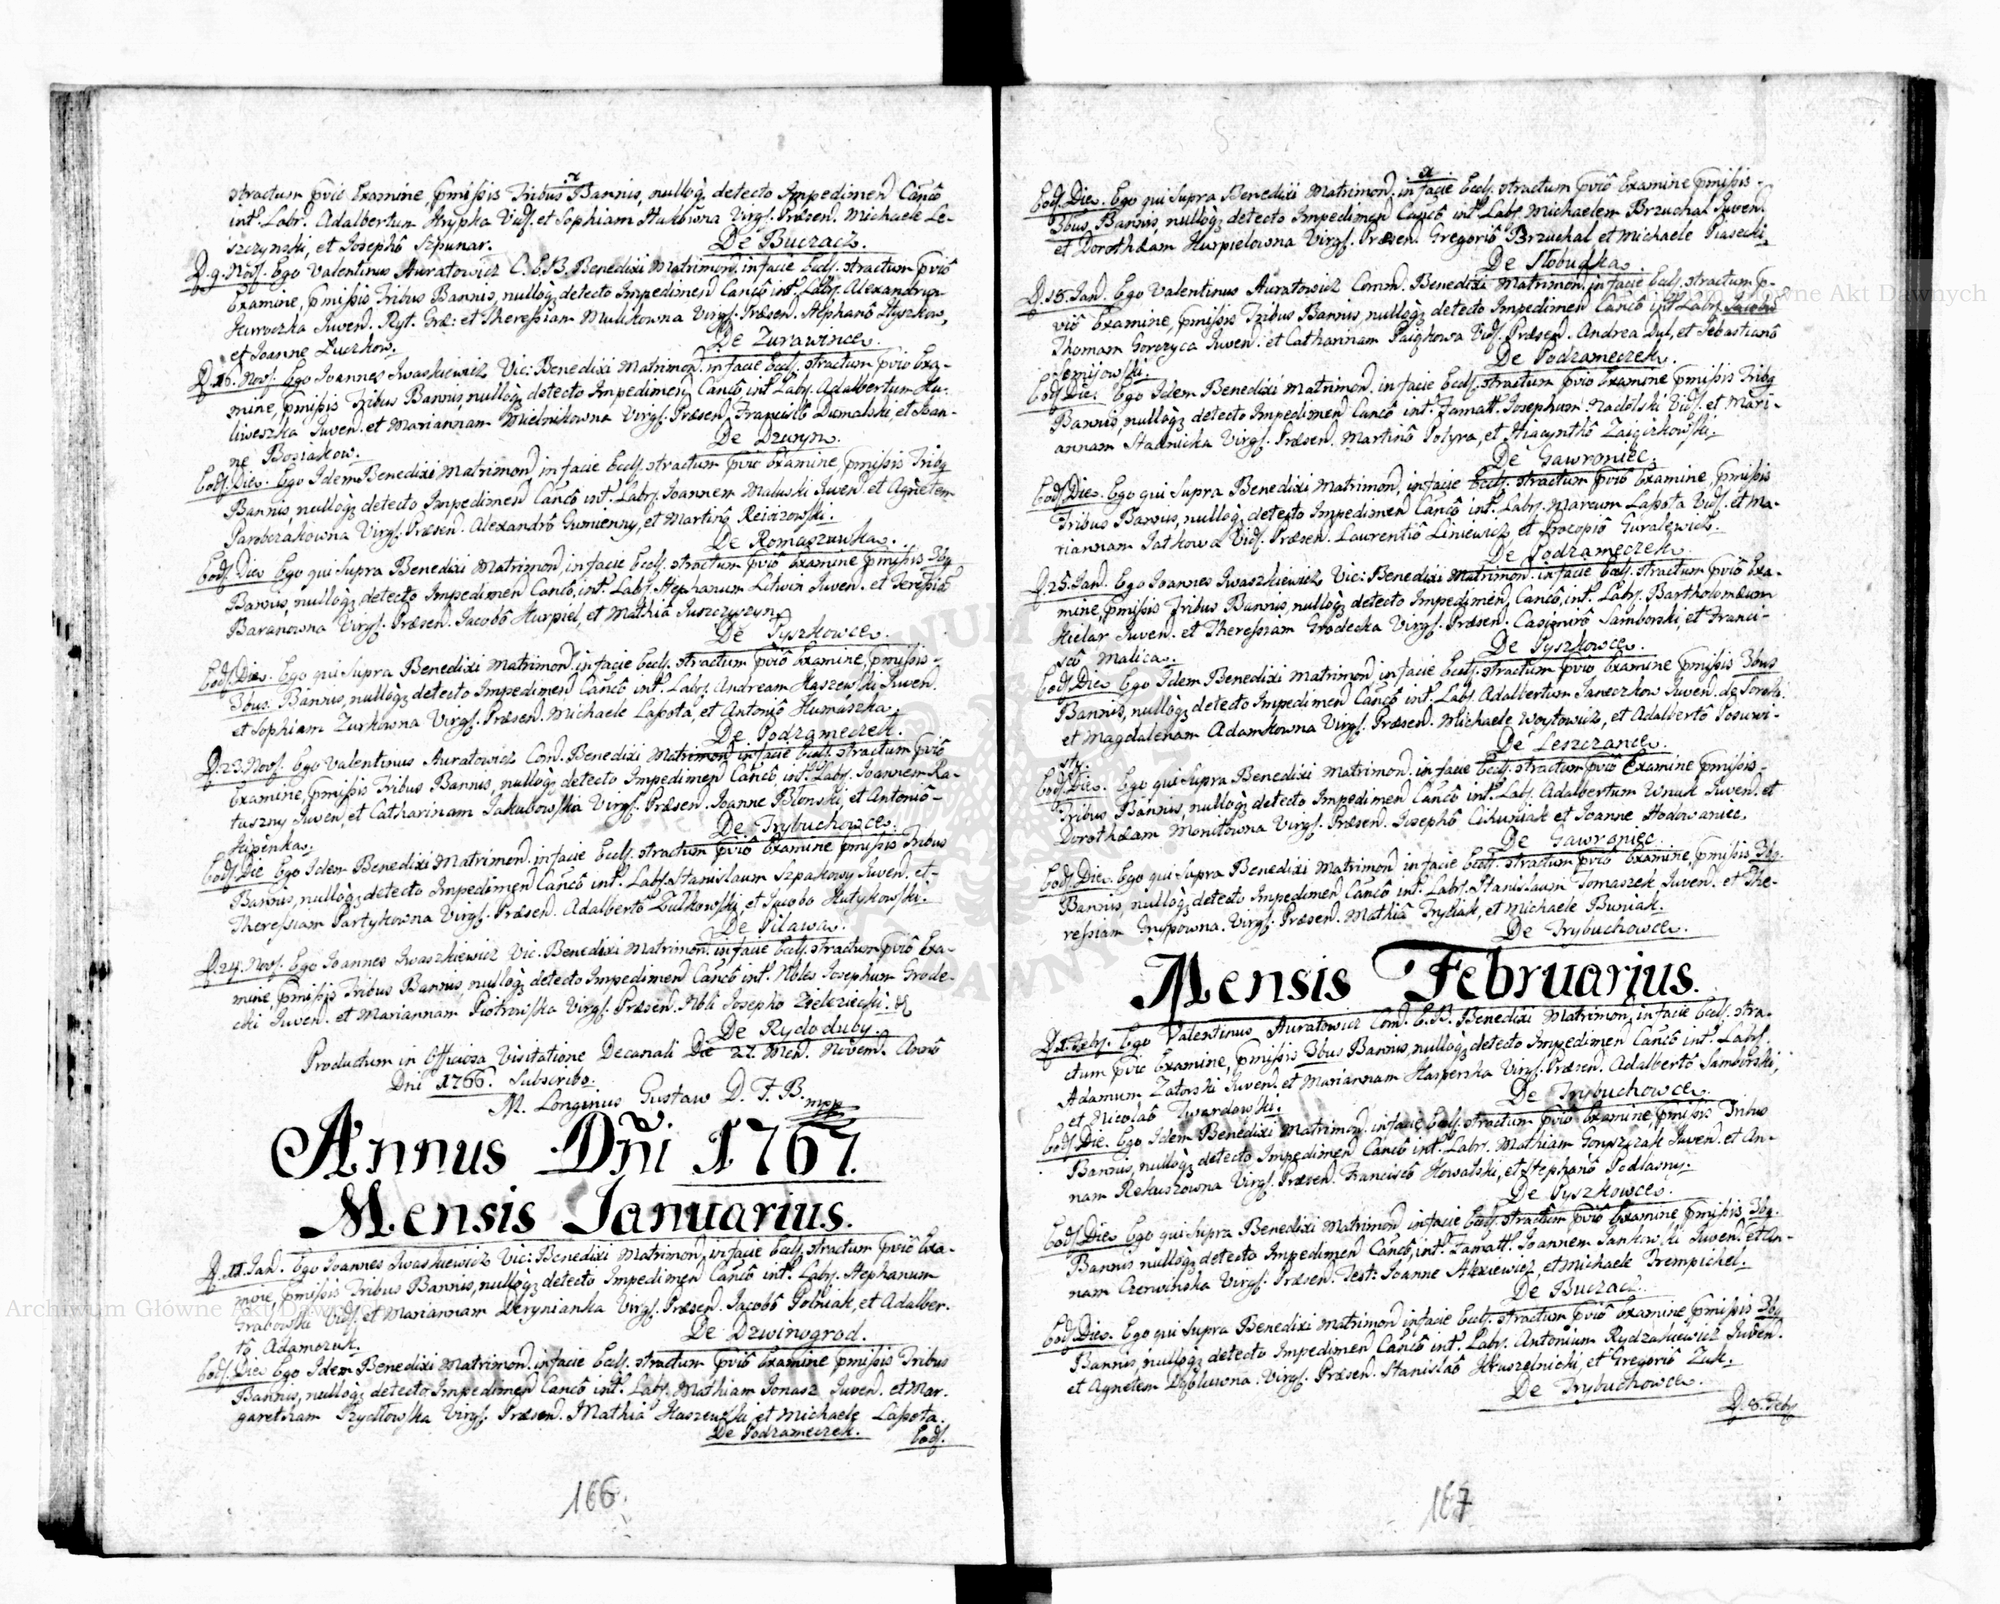 stractum pviô Examine, pmissis Tribus Bannis, nulloq; detecto Impedimen Canco
int. Labr. Adalbertum Hrypka Vid. et Sophiam Hukowna Virg. Præsen. Michaele Le-
szczynski, et Josephô Szpunar.
De Buczacz.
D. 9. Nov. Ego Valentinus Auratowicz C. E. B. Benedixi Matrimon. in facie Eccl. stractum pviô
Examine, pmissis Tribus Bannis, nulloq; detecto Impedimen Cancô int. Labr. Alexandrum
Juven. Ryt. Græ: et Theressiam Mulikowna Virg. Præsen. Stephanô Hyszkow,
et Joanne Luczkow.
De Zurawince.
D. 16. Nov. Ego Joannes Iwaskiewicz Vic: Benedixi Matrimon. in facie Eccl. stractum pviô Exa-
mine, pmissis Tribus Bannis, nulloq; detecto Impedimen Cancô int. Labr. Adalbertum Hu-
liweszka Juven. et Mariannam Mielnikowna Virg. Præsen. Franciscô Dumalski, et Joan-
ne Bosiakow.
De Dzuryn.
Eod. Die. Ego Idem Benedixi Matrimon. in facie Eccl. stractum pviô Examine, pmissis Tribq
Bannis, nulloq; detecto Impedimen Cancô int. Labr. Joannem Maluski Juven. et Agnetem
Parobczakowna Virg. Præsen. Alexandrô Gumienny, et Martinô
De Romaszuwka.
Eod. Die Ego qui Supra Benedixi Matrimon. in facie Eccl. stractum pviô Examine pmissis 3bq
Bannis, nulloq; detecto Impedimen Cancô, int. Labr. Stephanum Litwin Juven. et Teressia
Baranowna Virg. Præsen. Jacobô Hurpiel, et Mathia Juszczyszyn.
De Pyszkowce.
Eod. Die. Ego qui Supra Benedixi Matrimon. in facie Eccl. stractum pviô Examine, pmissis -
3bus Bannis, nulloq; detecto Impedimen Cancô int. Labr. Andream Haszewski Juven.
et Sophiam Zurkowna Virg. Præsen. Michaele Lassota, et Antoniô Humaszka.
De Podzameczek.
D. 23. Nov. Ego Valentinus Auratowicz Com. Benedixi Matrimon. in facie Eccl. stractum pviô
Examine, pmissis Tribus Bannis, nulloq; detecto Impedimen Cancô int. Labr. Joannem Ra-
tuszny Juven. et Catharinam Jakubowska Virg. Præsen. Joanne Blonski, et Antoniô -
De Trybuchowce.
Eod. Die Ego Idem Benedixi Matrimon. in facie Eccl. stractum pviô Examine pmissis Tribus
Bannis, nulloq; detecto Impedimen Cancô int. Labr. Stanislaum Szpakowy Juven. et -
Theressiam Partykowna Virg. Præsen. Adalbertô Zulkowski, et Jacobo Hutykowski.
De Pilawa.
D. 24. Nov. Ego Joannes Iwaszkiewicz Vic. Benedixi Matrimon. in facie Eccl. stractum pviô Exa-
mine pmissis Tribus Bannis, nulloq; detecto Impedimen Cancô int. Nôles Josephum Grode-
cki Juven. et Mariannam Piotrowska Virg. Præsen. Nôli Josephô Zieleziecki. &
De Rydoduby.
Productum in Officiosa Visitatione Decanali Die 27. Men. Novem. Annô
Dni 1766. Subscribo.
M. Longinus Gustaw D. F. B. mpp
Annus Dni 1767.
Mensis Januarius.
D. 11. Jan. Ego Joannes Iwaskiewicz Vic: Benedixi Matrimon. in facie Eccl. stractum pviô Exa-
mine, pmissis Tribus Bannis, nulloq; detecto Impedimen Cancô int. Labr. Stephanum
Grabowski Vid. et Mariannam Derynianka Virg. Præsen. Jacobô Polniak, et Adalber-
tô Adamczuk.
De Dzwinogrod.
Eod. Die. Ego Idem Benedixi Matrimon. in facie Eccl. stractum pviô Examine pmissis Tribus
Bannis, nulloq; detecto Impedimen Cancô int. Labr. Mathiam Jonasz Juven. et Mar-
garetham Szydlowska Virg. Præsen. Mathia Haszewski et Michaele Lassota.
De Podzameczek.
Eod.
166.
Eod. Die. Ego qui Supra Benedixi Matrimon. in facie Eccl. stractum pviô Examine pmissis -
3bus Bannis, nulloq; detecto Impedimen Cancô int. Labr. Michaelem Brzuchal Juven.
et Dorotheam Hurpielowna Virg. Præsen. Gregoriô Brzuchal et Michaele Piasecki.
De Slobudka.
D. 15. Jan. Ego Valentinus Auratowicz Comm. Benedixi Matrimon. in facie Eccl. stractum p-
viô Examine, pmissis Tribus Bannis, nulloq; detecto Impedimen Cancô int. Labr.
Thomam Gorczyca Juven. et Catharinam Vid. Præsen. Andrea Dul, et Sebastianô
De Podzameczek.
Eod. Die. Ego Idem Benedixi Matrimon. in facie Eccl. stractum pviô Examine pmissis Tribq
Bannis, nulloq; detecto Impedimen Cancô int. Famatt. Josephum Nadolski Vid. et Mari-
annam Stadnicka Virg. Præsen. Martinô Potyra, et Hiacynthô Zaiączkowski.
De Gawroniec.
Eod. Die. Ego qui Supra Benedixi Matrimon. in facie Eccl. stractum pviô Examine, pmissis
Tribus Bannis, nulloq; detecto Impedimen Cancô int. Labr. Marcum Lassota Vid. et Ma-
riannam Jatkowa Vid. Præsen. Laurentiô Liniewicz, et Procopiô Guralewicz.
De Podzameczek.
D. 25. Jan. Ego Joannes Iwaszkiewicz Vic: Benedixi Matrimon. in facie Eccl. stractum pviô Exa-
mine, pmissis Tribus Bannis, nulloq; detecto Impedimen. Cancô, int. Labr. Bartholomæum
Kielar Juven. et Theressiam Grodecka Virg. Præsen. Casimirô Samborski, et Franci-
scô Malica.
De Pyszkowce.
Eod. Die Ego Idem Benedixi Matrimon. in facie Eccl. stractum pviô Examine pmissis 3bus
Bannis, nulloq; detecto Impedimen Cancô int. Labr. Adalbertum Janeczkow Juven. de Soroki
et Magdalenam Adamkowna Virg. Præsen. Michaele Woytowicz, et Adalbertô
De Leszczance.
Eod. Die. Ego qui Supra Benedixi Matrimon. in facie Eccl. stractum pviô Examine pmissis -
Tribus Bannis, nulloq; detecto Impedimen Cancô int. Labr. Adalbertum Wnuk Juven. et
Dorotheam Monitowna Virg. Præsen. Josephô Cihuniak et Joanne Hodowaniec.
De Gawroniec.
Eod. Die. Ego qui Supra Benedixi Matrimon in facie Eccl. stractum pviô Examine, pmissis 3bq.
Bannis, nulloq; detecto Impedimen Cancô int. Labr. Stanislaum Tomaszek Juven. et The-
ressiam Virg. Præsen. Mathiâ et Michaele Buniak.
De Trybuchowce.
Mensis Februarius.
D. 1. Feb. Ego Valentinus Auratowicz Com. E. B. Benedixi Matrimon. in facie Eccl. stra-
ctum pviô Examine, pmissis 3bus Bannis, nulloq; detecto Impedimen Cancô int. Labr.
Adamum Zatorski Juven. et Mariannam Kasperska Virg. Præsen. Adalbertô Samborski,
et Nicolaô Twardowski.
De Trybuchowce.
Eod. Die. Ego Idem Benedixi Matrimon. in facie Eccl. stractum pviô Examine, pmissis Tribus
Bannis, nulloq; detecto Impedimen Cancô int. Labr. Mathiam Juven. et An-
nam Virg. Præsen. Franciscô Kowalski, et Stephanô Podlasny.
De Pyszkowce.
Eod. Die Ego qui Supra Benedixi Matrimon in facie Eccl. stractum pviô Examine pmissis 3bq.
Bannis nulloq; detecto Impedimen Cancô, int. Famatt. Joannem Jankowski Juven. et An-
nam Czerwinska Virg. Præsen. Test: Joanne Alexiewicz, et Michaele Trempichel.
De Buczacz.
Eod. Die. Ego qui Supra Benedixi Matrimon. in facie Eccl. stractum pviô Examine pmissis 3bq
Bannis, nulloq; detecto Impedimen Cancô int. Labr. Antonium Rydzakiewicz Juven.
et Agnetem Virg. Præsen. Stanislaô et Gregoriô Zuk.
De Trybuchowce.
D. 8. Feb
167
Archiwum Główne Akt Dawnych